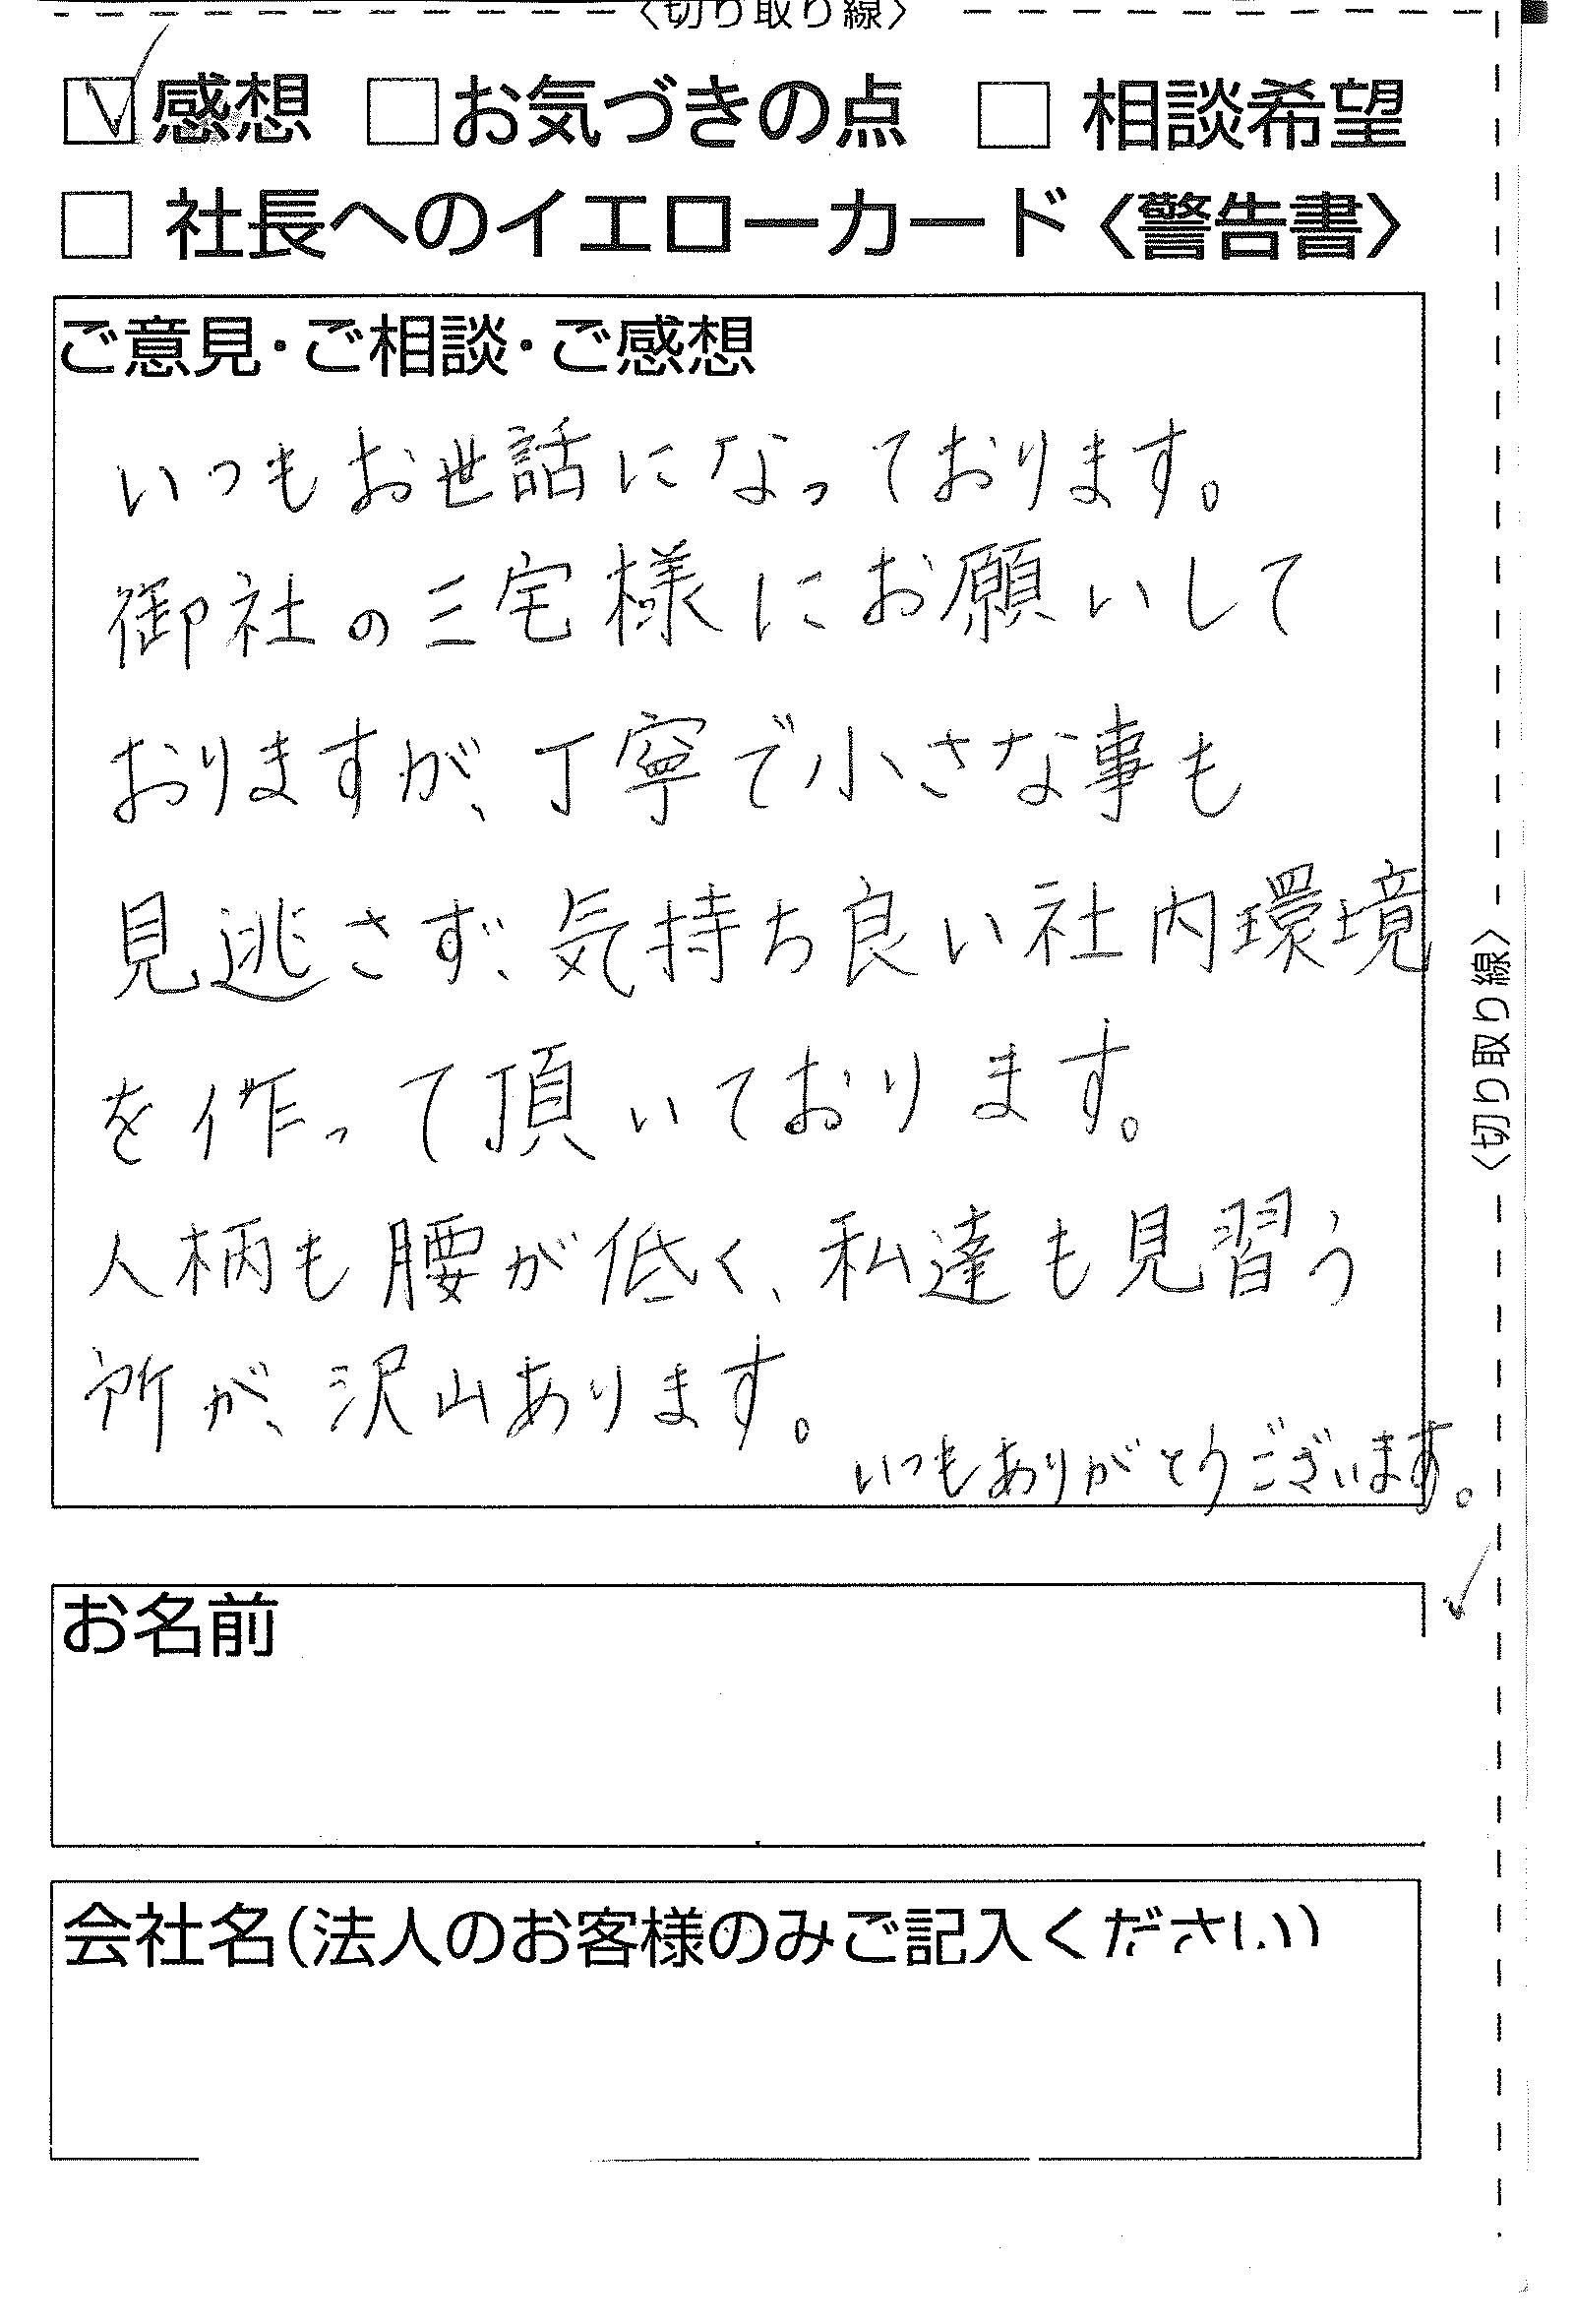 〈切り取り線〉
☑感想 □お気づきの点 □ 相談希望
□ 社長へのイエローカード〈警告書〉
ご意見・ご相談・ご感想
いつもお世話になっております。
御社の三宅様にお願いして
おりますが、丁寧で小さな事も
見逃さず、気持ち良い社内環境
を作って頂いております。
人柄も腰が低く、私達も見習う
所が、沢山あります。
いつもありがとうございます。
〈切り取り線〉
お名前
会社名(法人のお客様のみご記入ください)